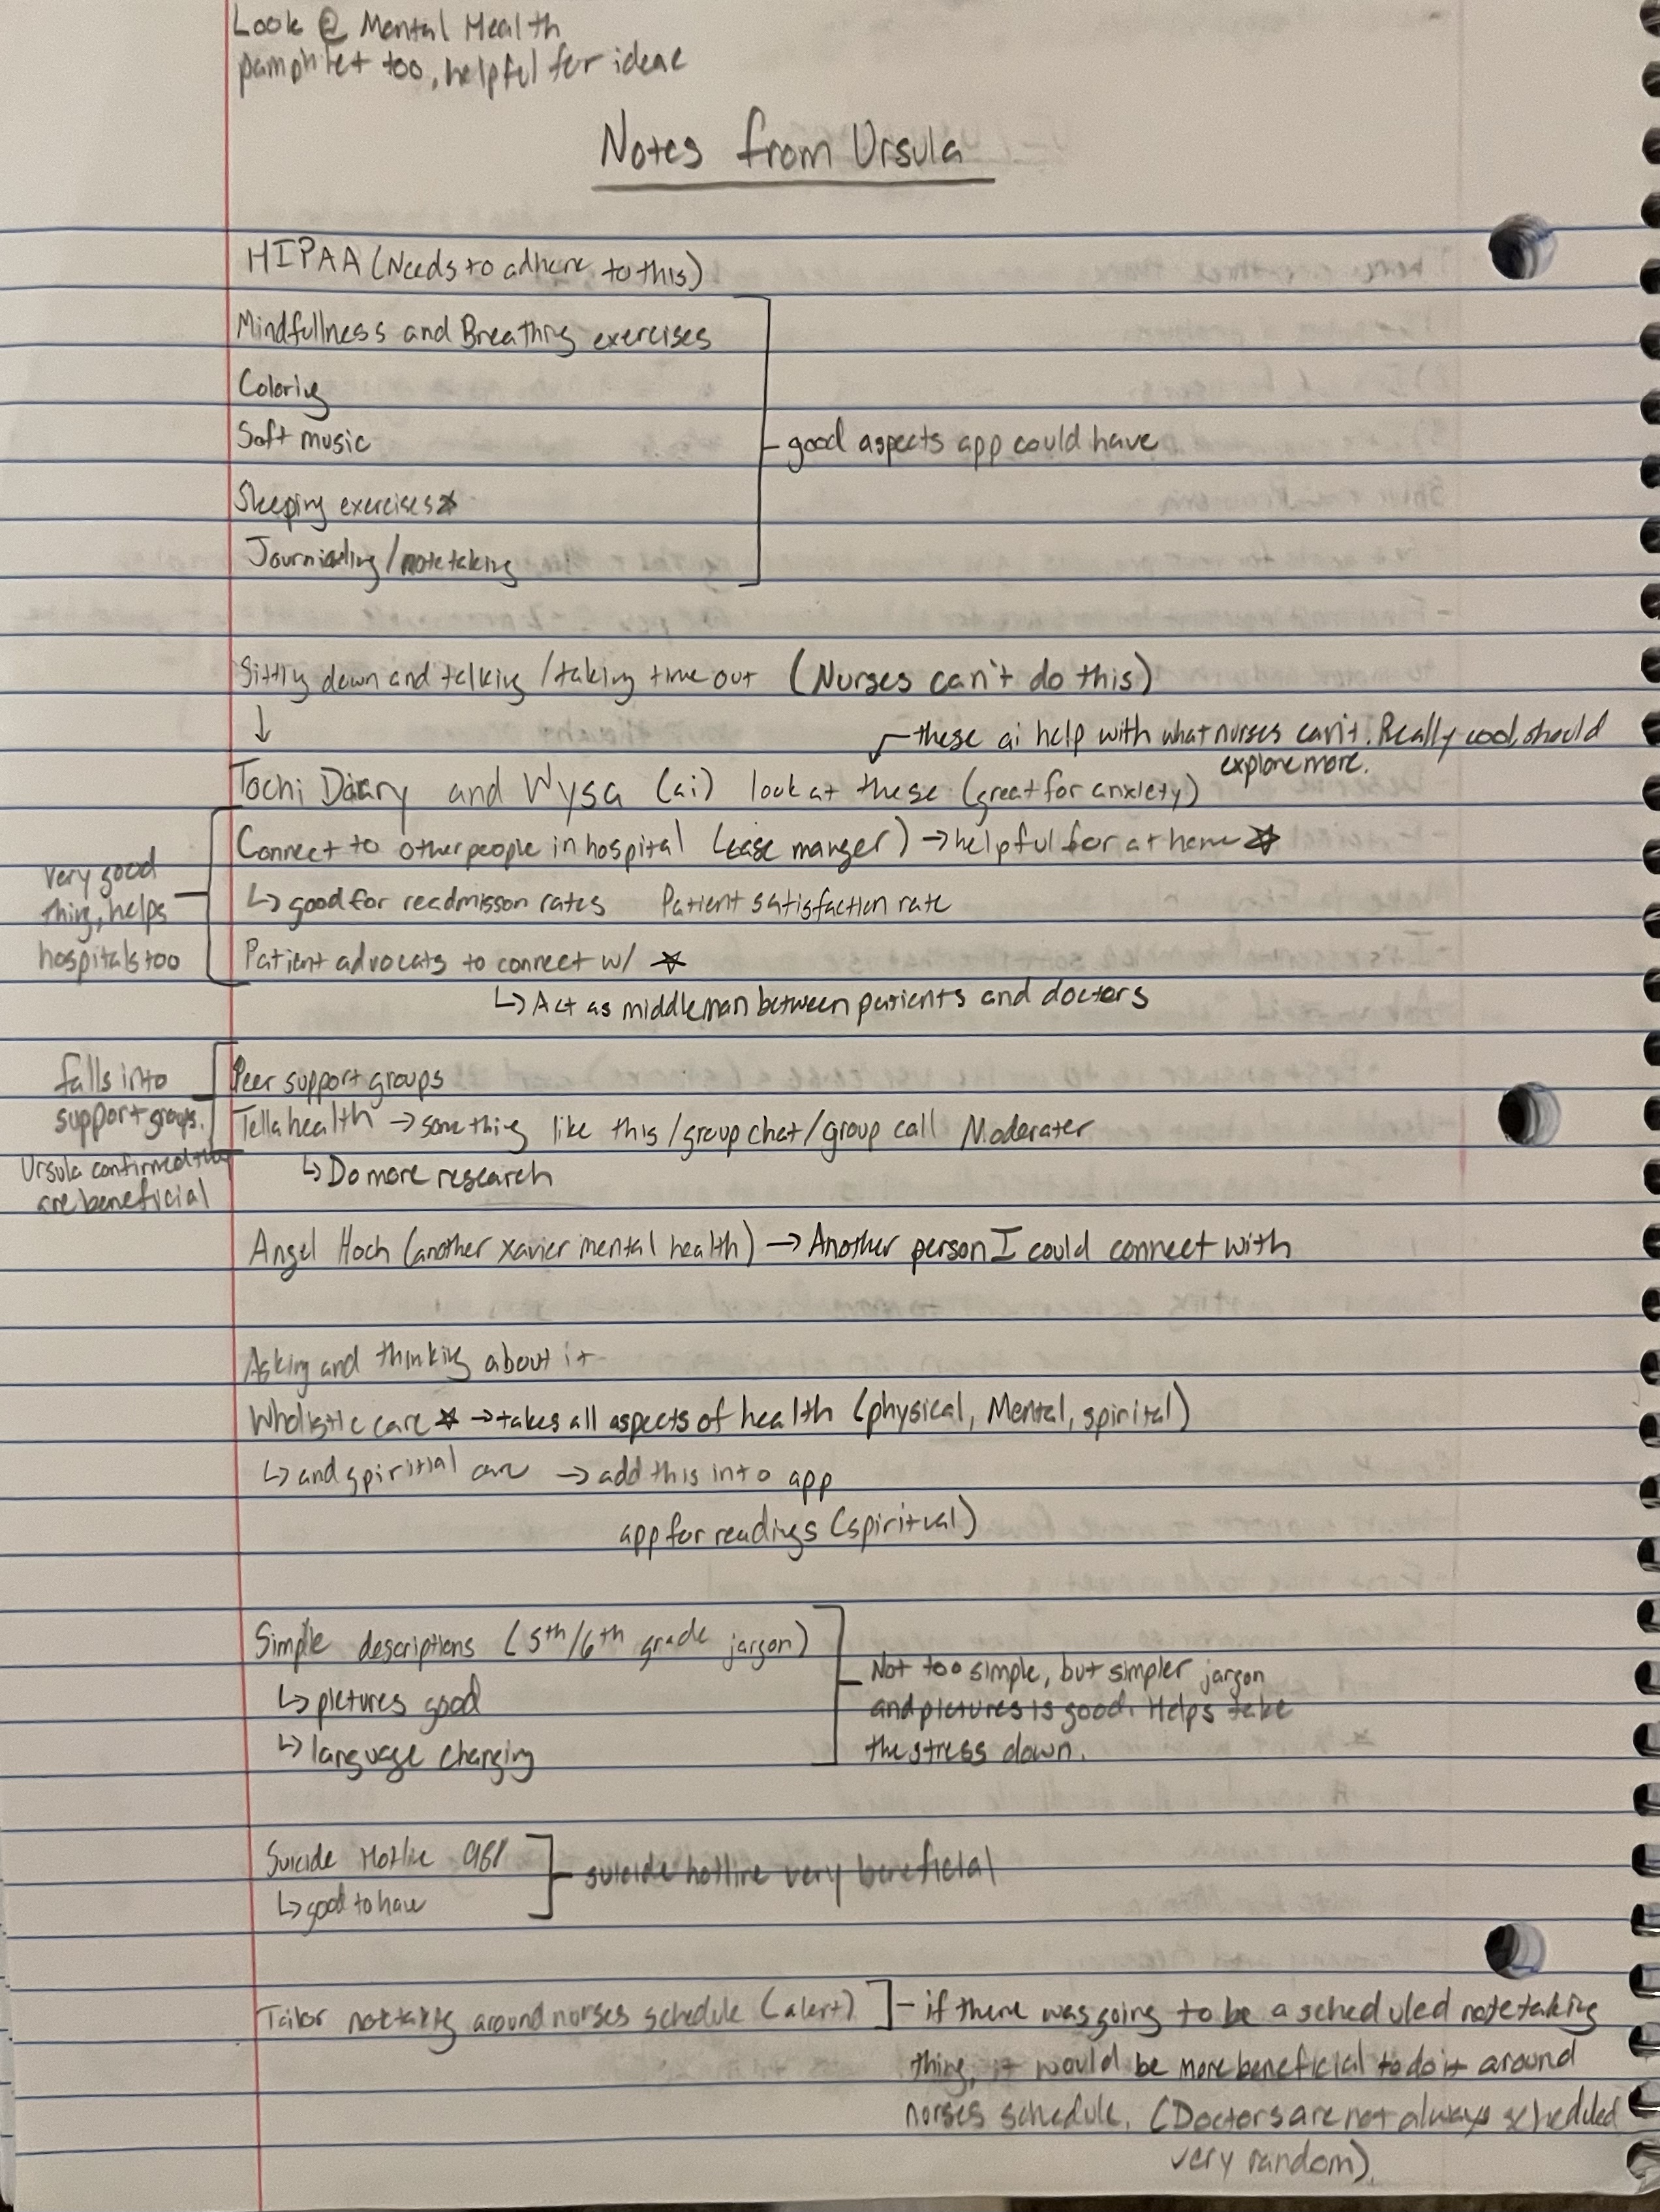 Look @ Mental Health
pamphlet too, helpful for ideae
Notes from Ursula
HIPAA (Needs to adhere to this)
Mindfullness and Breathing exercises
Coloring
Soft music
good aspects app could have
Sleeping exercises ☆
Journaling/notetaking
Sitting down and talking /taking time out (Nurses can't do this)
↓
these ai help with what nurses can't. Really cool, should
explore more.
Tochi Diary and Wysa (ai) look at these (great for anxiety)
Connect to other people in hospital (case manger) → helpful for at home ☆
very good
thing, helps
hospitals too
↳ good for readmisson rates Patient satisfaction rate
Patient advocats to connect w/ ☆
↳ Act as middleman between patients and doctors
falls into
support groups.
Ursula confirmed they
are beneficial
Peer support groups
Tellahealth → something like this/group chat/group call Moderater
↳ Do more research
Angel Hoch (another xavier mental health) → Another person I could connect with
Asking and thinking about it
Wholistic care ☆ → takes all aspects of health (physical, Mental, spirital)
↳ and spiritial care → add this into app
app for readings (spiritual)
Simple descriptions (5th/6th grade jargon)
↳ pictures good
↳ language changing
Not too simple, but simpler jargon
and pictures is good. Helps take
the stress down.
Suicide Hotline 988
↳ good to have
suicide hotline very beneficial
Tailor notetaking around norses schedule (alert)
if there was going to be a scheduled notetaking
thing, it would be more beneficial to do it around
norses schedule. (Doctors are not always scheduled
very random).